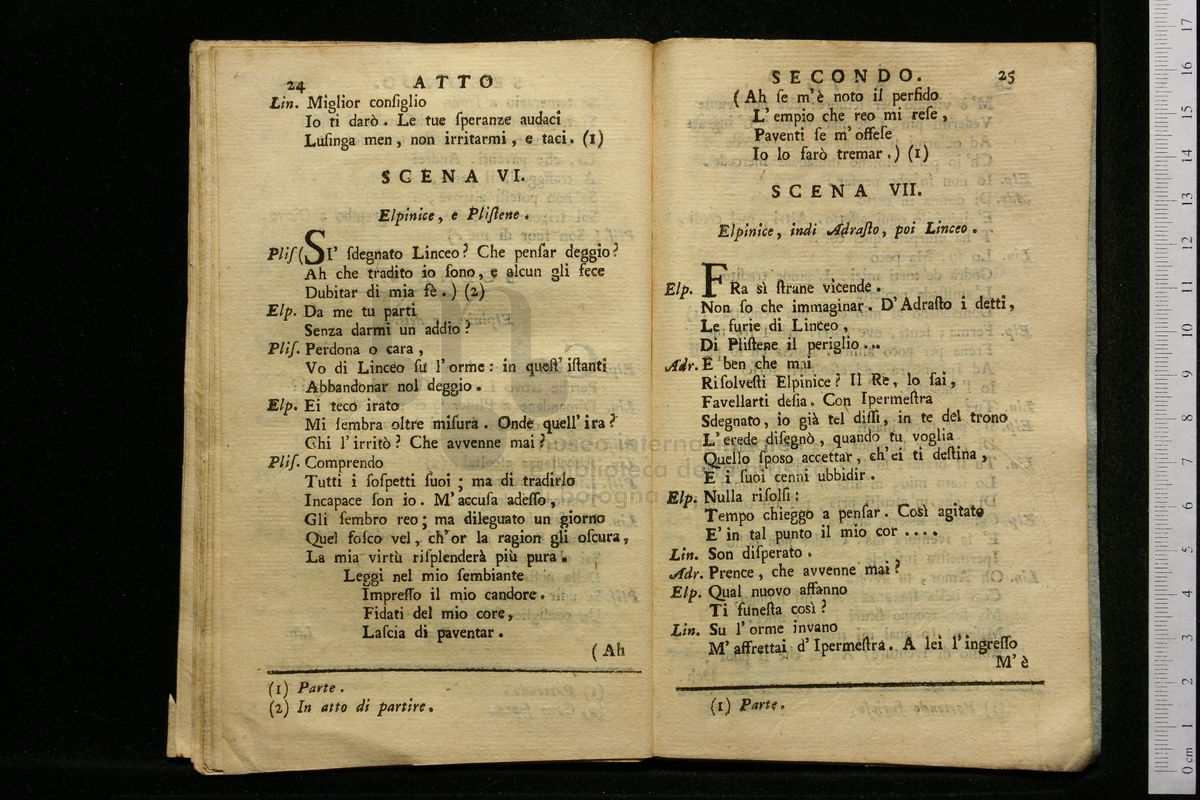 24 ATTO
Lin. Miglior conſiglio
Io ti darò. Le tue ſperanze audaci
Luſinga men, non irritarmi, e taci. (1)
SCENA VI.
Elpinice, e Pliſtene.
Pliſ (SI' ſdegnato Linceo? Che penſar deggio?
Ah che tradito io ſono, e alcun gli fece
Dubitar di mia fè.) (2)
Elp. Da me tu parti
Senza darmi un addio?
Pliſ. Perdona o cara,
Vo di Linceo ſu l'orme: in queſt'iſtanti
Abbandonar nol deggio.
Elp. Ei teco irato
Mi ſembra oltre miſura. Onde quell'ira?
Chi l'irritò? Che avvenne mai?
Pliſ. Comprendo
Tutti i ſoſpetti ſuoi; ma di tradirlo
Incapace ſon io. M'accuſa adeſſo,
Gli ſembro reo; ma dileguato un giorno
Quel foſco vel, ch'or la ragion gli oſcura,
La mia virtù riſplenderà più pura.
Leggi nel mio ſembiante
Impreſſo il mio candore.
Fidati del mio core,
Laſcia di paventar.
(Ah
(1) Parte.
(2) In atto di partire.
SECONDO. 25
(Ah ſe m'è noto il perfido
L'empio che reo mi reſe,
Paventi ſe m'offeſe
Io lo farò tremar.) (1)
SCENA VII.
Elpinice, indi Adraſto, poi Linceo.
Elp. FRa sì ſtrane vicende.
Non ſo che immaginar. D'Adraſto i detti,
Le furie di Linceo,
Di Pliſtene il periglio...
Adr. E ben che mai
Riſolveſti Elpinice? Il Re, lo ſai,
Favellarti deſia. Con Ipermeſtra
Sdegnato, io già tel diſſi, in te del trono
L'erede diſegnò, quando tu voglia
Quello ſpoſo accettar, ch'ei ti deſtina,
E i ſuoi cenni ubbidir.
Elp. Nulla riſolſi:
Tempo chieggo a penſar. Così agitato
E' in tal punto il mio cor....
Lin. Son diſperato.
Adr. Prence, che avvenne mai?
Elp. Qual nuovo affanno
Ti funeſta così?
Lin. Su l'orme invano
M'affrettai d'Ipermeſtra. A lei l'ingreſſo
M'è
(1) Parte.
museo internazionale
biblioteca della musica
bologna
0 cm 1 2 3 4 5 6 7 8 9 10 11 12 13 14 15 16 17